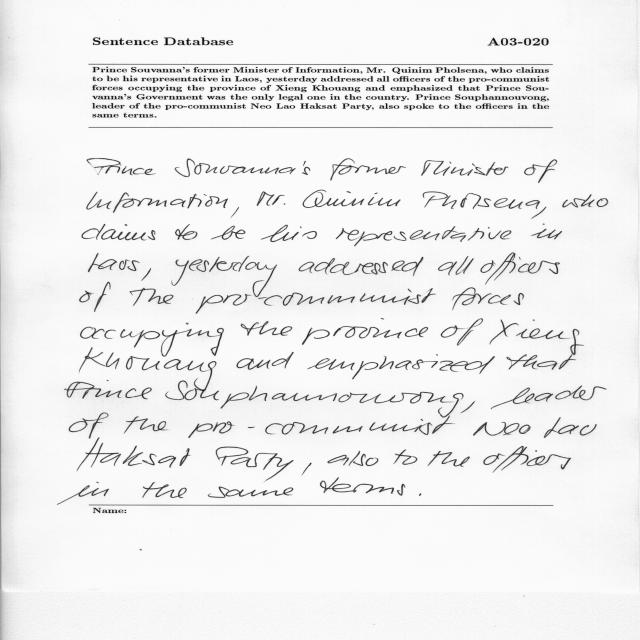 Sentence Database A03-020
Prince Souvanna's former Minister of Information, Mr. Quinim Pholsena, who claims
to be his representative in Laos, yesterday addressed all officers of the pro-communist
forces occupying the province of Xieng Khouang and emphasized that Prince Sou-
vanna's Government was the only legal one in the country. Prince Souphannouvong,
leader of the pro-communist Neo Lao Haksat Party, also spoke to the officers in the
same terms.
Prince Souvanna's former Minister of
Information, Mr. Quinim Pholsena, who
claims to be his representative in
Laos, yesterday addressed all officers
of the pro-communist forces
occupying the province of Xieng
Khouang and emphasized that
Prince Souphannouvong, leader
of the pro-communist Neo Lao
Haksat Party, also to the officers
in the same terms.
Name: